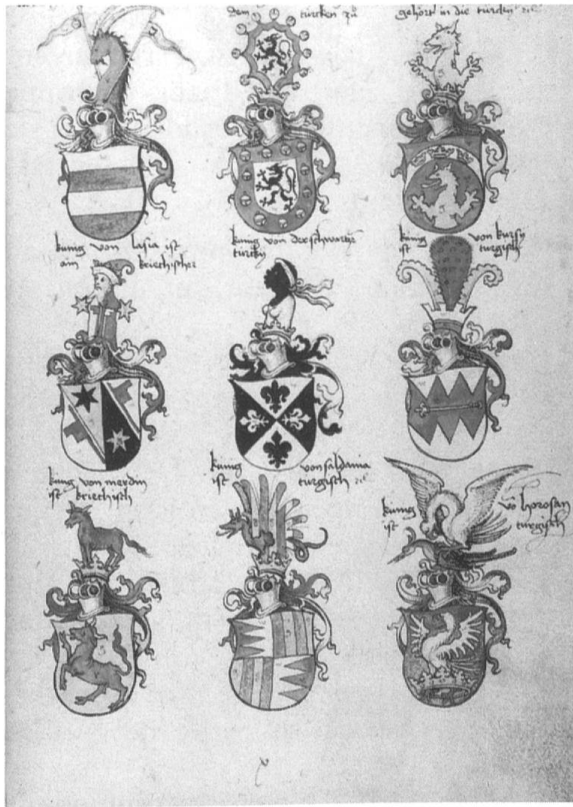 dem türcken zů
gehört in die türckey
kunig von lasia ist
ain kriechischer
kunig von der schwartze
türcky
kunig von kursy
ist turgisch
kunig von merdin
ist kriechisch
kunig von saldania
ist turgisch
kunig vo horosan
ist turgisch